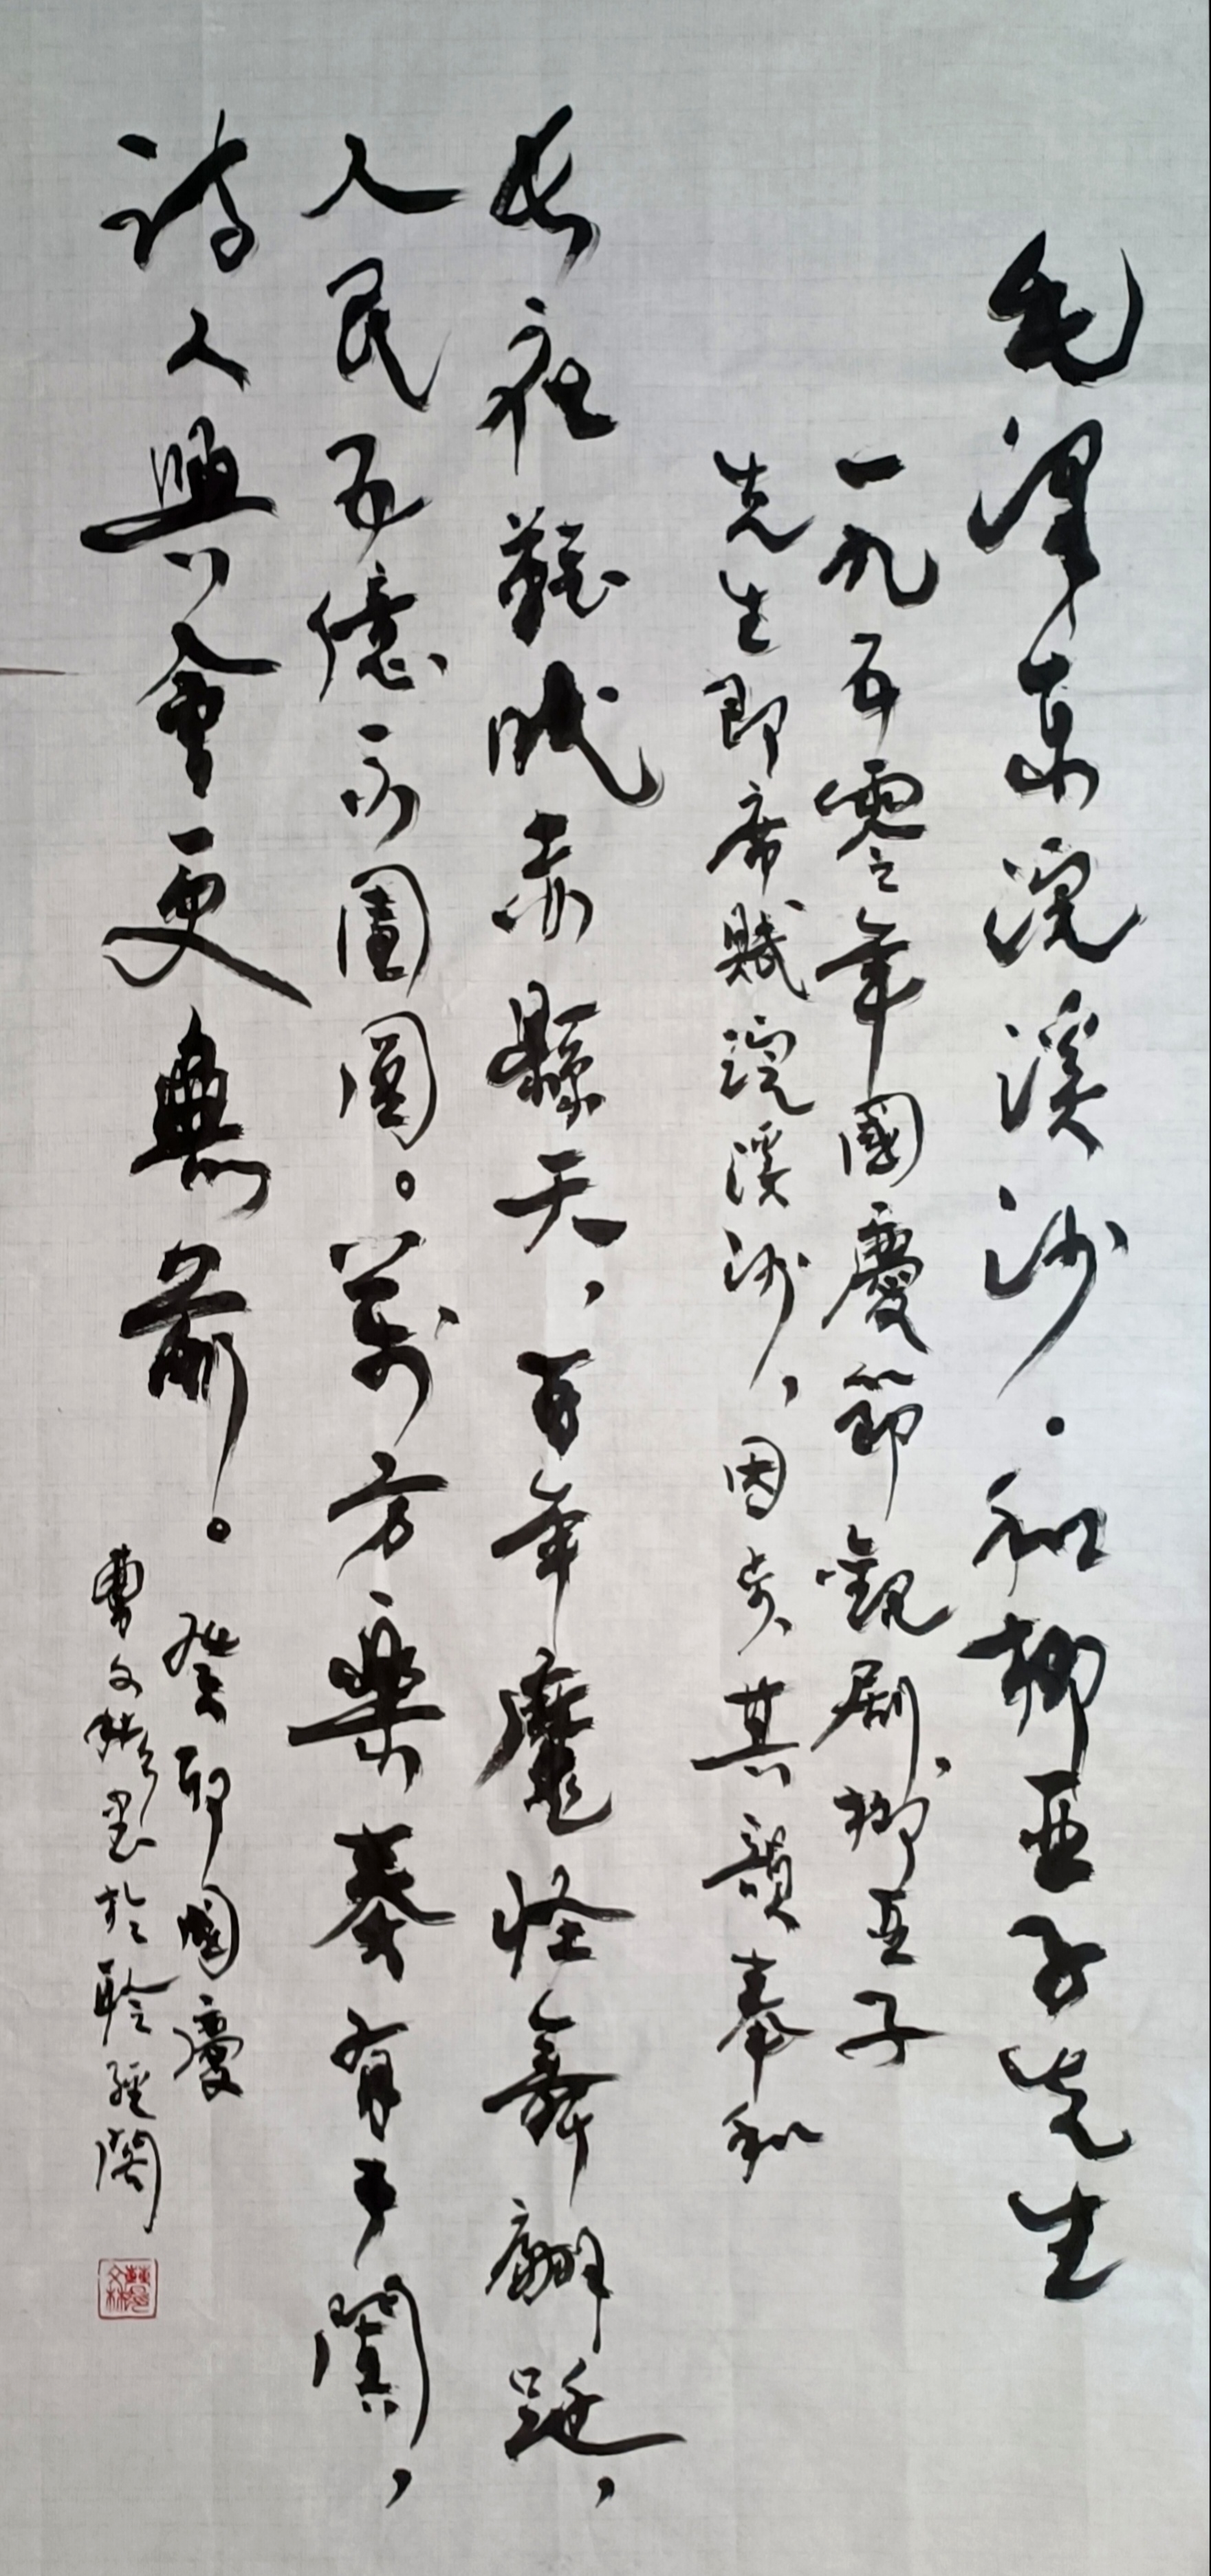 毛澤東浣溪沙·和柳亞子先生
一九五零年國慶節觀劇、柳亞子
先生即席賦浣溪沙，因步其韻奉和
長夜難曉赤縣天，百年魔怪舞翩躚，
人民五億不團圓。萬方樂奏有于闐，
詩人興會更無前。
癸卯國慶
曹文林書於聆經閣